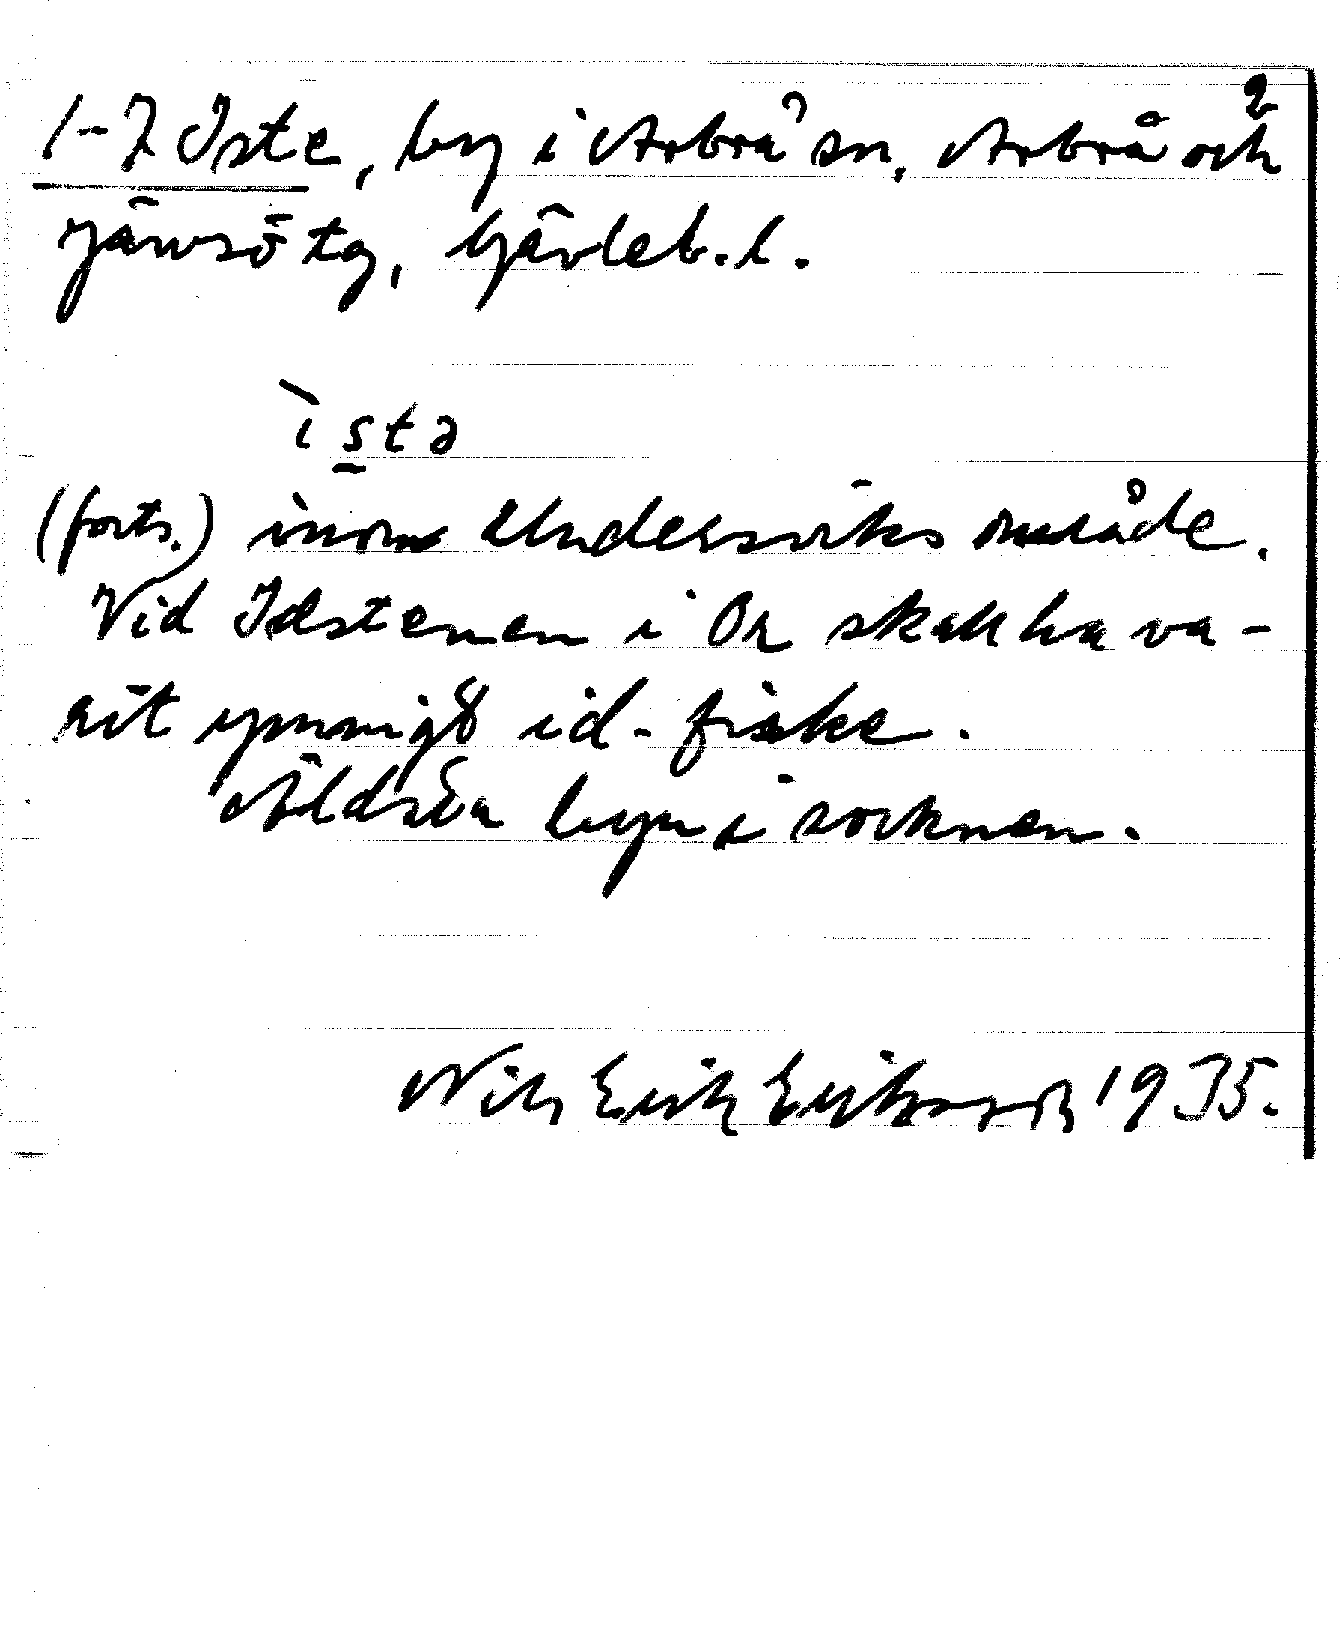 2
1-7 Iste, by i Arbrå sn, Arbrå och
Järvsö tg, Gävleb. l.
ìstə
(forts.) inom Undersviks område.
Vid Idstenen i Ön skall ha va-
rit ymnigt id-fiske.
Äldsta byn i socknen.
Nils Erik Eriksson 1935.